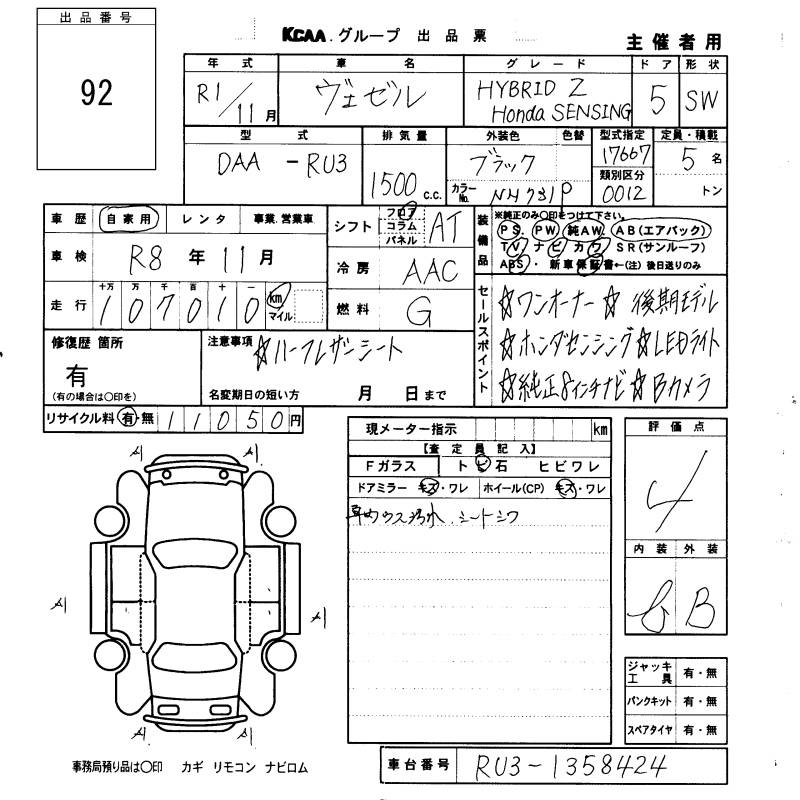 出品番号
92
KCAA.グループ 出品票
主催者用
年式 車名 グレード ドア 形状
R1/11月 ヴェゼル HYBRID Z Honda SENSING 5 SW
型式 排気量 外装色 色替 型式指定 定員・積載
DAA-RU3 1500 c.c. ブラック 17667 5名
カラーNo. NH731P 類別区分 0012 トン
車歴 自家用 レンタ 事業.営業車
シフト フロア コラム パネル AT
装備品 ※純正のみ○印をつけて下さい。
PS. PW 純AW. AB(エアバック)
TV ナビ カワ SR(サンルーフ)
ABS・新車保証書←(注)後日送りのみ
車検 R8年11月
冷房 AAC
走行 十万 万 千 百 十 一
107010 km マイル
燃料 G
セールスポイント
☆ワンオーナー☆後期モデル
☆ホンダセンシング☆LEDライト
☆純正8インチナビ☆Bカメラ
修復歴 箇所
有
(有の場合は○印を)
注意事項 ☆ハーフレザーシート
名変期日の短い方 月 日まで
リサイクル料 有・無 11050円
現メーター指示 km
【査定員記入】
Fガラス トビ石 ヒビワレ
ドアミラー キズ・ワレ ホイール(CP) キズ・ワレ
車内ウス汚れ.シートシワ
評価点
4
内装 外装
B
A1 A1
A1 A1
A1 A1
ジャッキ工具 有・無
パンクキット 有・無
スペアタイヤ 有・無
事務局預り品は○印 カギ リモコン ナビロム
車台番号 RU3-1358424